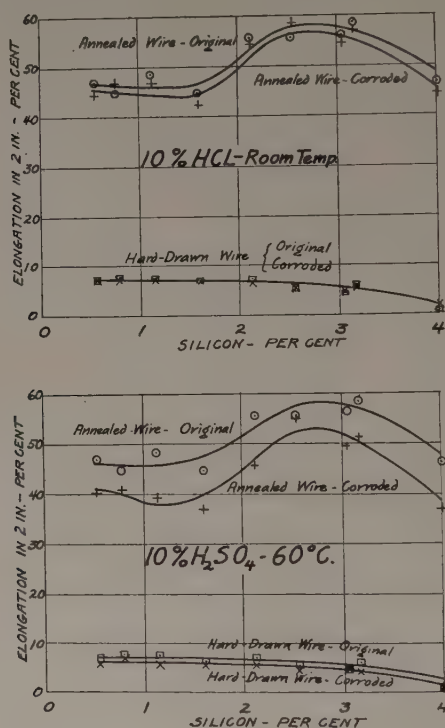 ELONGATION IN 2 IN. - PER CENT
60
50
40
30
20
10
0
Annealed Wire - Original
Annealed Wire - Corroded
10% HCL - Room Temp.
Hard-Drawn Wire { Original
Corroded
0 1 2 3 4
SILICON - PER CENT
ELONGATION IN 2 IN. - PER CENT
60
50
40
30
20
10
0
Annealed Wire - Original
Annealed Wire - Corroded
10% H₂SO₄ - 60°C.
Hard-Drawn Wire - Original
Hard-Drawn Wire - Corroded
0 1 2 3 4
SILICON - PER CENT